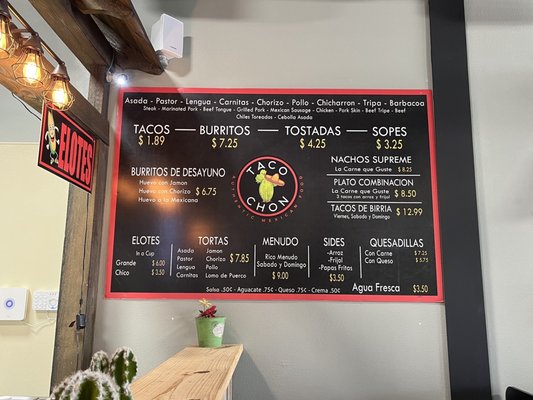 Asada - Pastor - Lengua - Carnitas - Chorizo - Pollo - Chicharron - Tripa - Barbacoa
Steak - Marinated Pork - Beef Tongue - Grilled Pork - Mexican Sausage - Chicken - Pork Skin - Beef Tripe - Beef
Chiles Toreados - Cebolla Asada
TACOS — BURRITOS — TOSTADAS — SOPES
$ 1.89 $ 7.25 $ 4.25 $ 3.25
ELOTES
BURRITOS DE DESAYUNO
Huevo con Jamon
Huevo con Chorizo $ 6.75
Huevo a la Mexicana
TACO
CHON
AUTHENTIC MEXICAN FOOD
NACHOS SUPREME
La Carne que Guste $ 8.25
PLATO COMBINACION
La Carne que Guste $ 8.50
2 tacos con arroz y frijol
TACOS DE BIRRIA
Viernes, Sabado y Domingo $ 12.99
ELOTES
In a Cup
Grande $ 6.00
Chico $ 3.50
TORTAS
Asada Jamon
Pastor Chorizo $ 7.85
Lengua Pollo
Carnitas Lomo de Puerco
MENUDO
Rico Menudo
Sabado y Domingo
$ 9.00
SIDES
-Arroz
-Frijol
-Papas Fritas
$3.50
QUESADILLAS
Con Carne $ 7.25
Con Queso $ 5.75
Salsa .50¢ - Aguacate .75¢ - Queso .75¢ - Crema .50¢
Agua Fresca $3.50